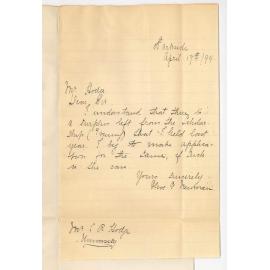 April 17th/99
Mr Hodge
Dear Sir
I understand that there is
a surplus left from the Scholar-
ship ( ) that I held last
year. I beg to make applica-
tion for the same, if such
is the case
Yours sincerely
Mr. C. A. Hodge
University